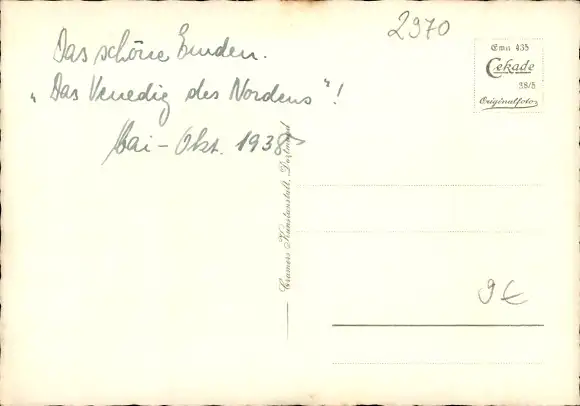 2970
Das schöne Emden.
„Das Venedig des Nordens"!
Mai - Okt. 1938
Emn 435
Cekade
38/5
Originalfoto
Cramers Kunstanstalt, Dortmund
9 €